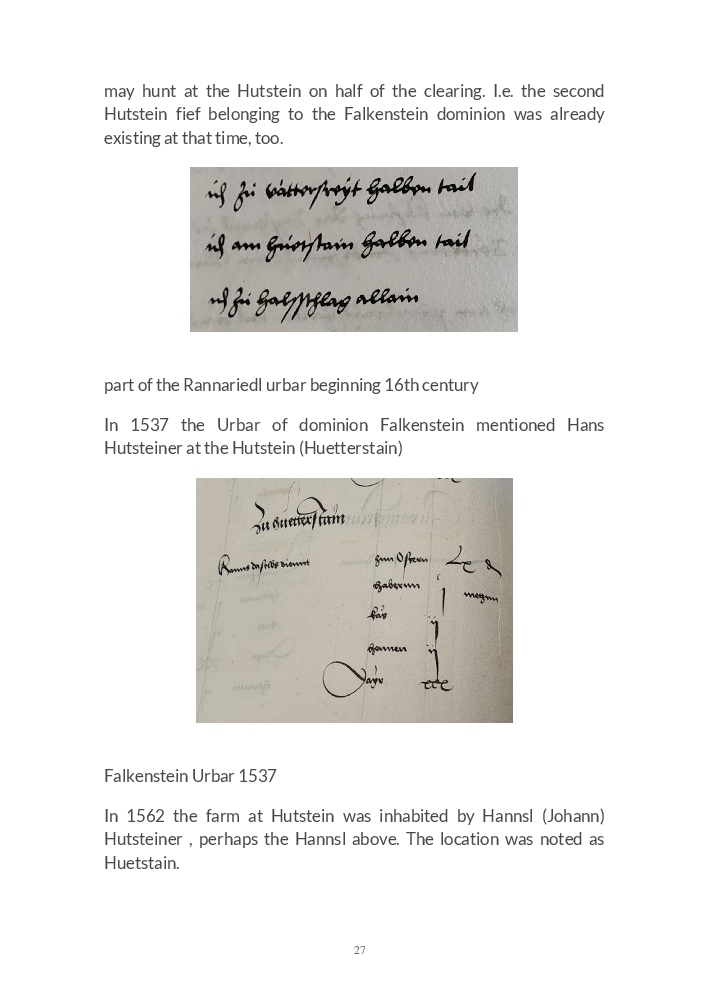 may hunt at the Hutstein on half of the clearing. I.e. the second
Hutstein fief belonging to the Falkenstein dominion was already
existing at that time, too.
ich zu vatterſreyt halben tail
ich am huetſtain halben tail
ich zu halſſchlag allain
part of the Rannariedl urbar beginning 16th century
In 1537 the Urbar of dominion Falkenstein mentioned Hans
Hutsteiner at the Hutstein (Huetterstain)
Zu Huetterſtain
Hanns daſelbs diennt
zun Oſtern
habernn
j
metzen
käs
ij
hennen
ij
Ayr
xxx
Falkenstein Urbar 1537
In 1562 the farm at Hutstein was inhabited by Hannsl (Johann)
Hutsteiner , perhaps the Hannsl above. The location was noted as
Huetstain.
27